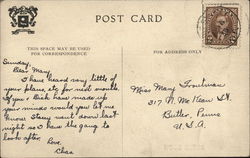 POST CARD
THIS SPACE MAY BE USED
FOR CORRESPONDENCE
FOR ADDRESS ONLY
Sunday.
Dear Mary
I have heard very little of
your plans, etc for next month.
If you & Dick have made up
your minds would you let me
know Stacey went down last
night so I have the gang to
look after.
Love
Chas
Miss Mary Troutman
317 N. McKean St.
Butler, Penna
U.S.A.